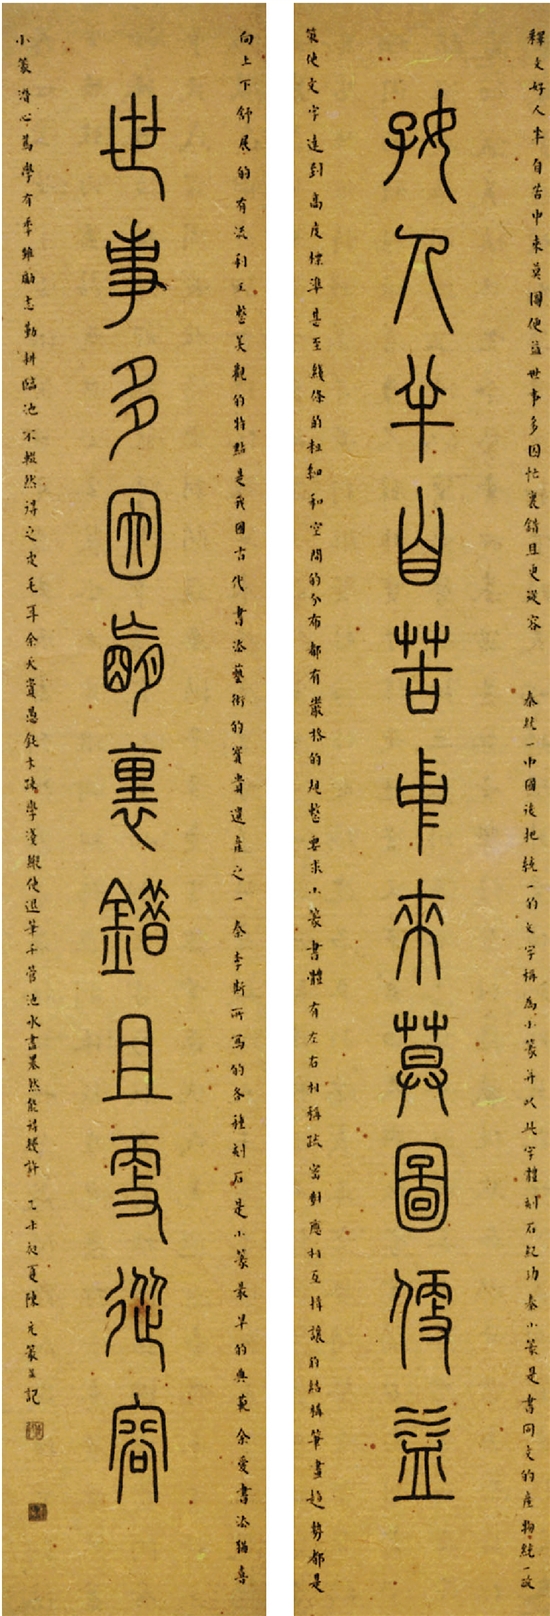 釋文好人半自苦中來莫圖便益世事多因忙裏錯且更從容 秦統一中國後把統一的文字稱爲小篆并以此字體刻石紀功秦小篆是書同文的產物統一政
好人半自苦中來莫圖便益
策使文字達到高度標準甚至綫條的粗細和空間的分布都有嚴格的規整要求小篆書體有左右相稱疏密對應相互揖讓的結構筆畫趨勢都是
向上下舒展的有流利工整美觀的特點是我國古代書法藝術的寶貴遺產之一秦李斯所寫的各種刻石是小篆最早的典範余愛書法猶喜
世事多因忙裏錯且更從容
小篆潛心爲學有年雖勵志勤耕臨池不輟然得之皮毛耳余天資愚鈍才疏學淺縱使退筆千管池水書墨然能諸 許 乙未初夏陳元篆並記